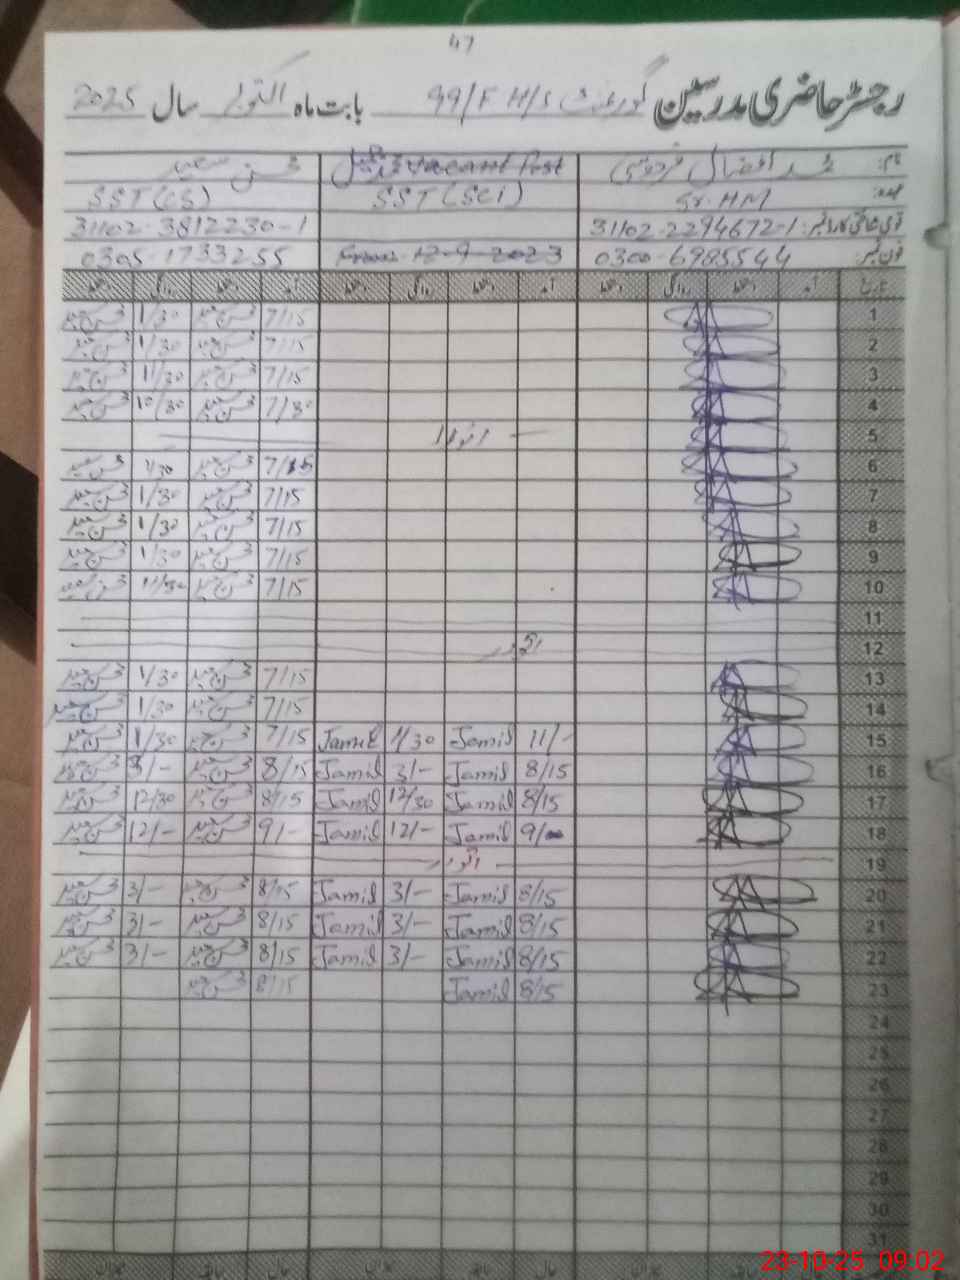 47
رجسٹر حاضری مدرسین گورنمنٹ 99/F H/S بابت ماہ اکتوبر سال 2025
نام: محمد افضال فردوسی Vacant Post محسن سعید
عہدہ: Sr. HM SST (Sci) SST (CS)
قومی شناختی کارڈ نمبر: 31102-2294672-1 31102-3812230-1
فون نمبر: 0300-6985544 From 12-9-2023 0305-1733255
تاریخ آمد دستخط روانگی دستخط آمد دستخط روانگی دستخط آمد دستخط روانگی دستخط
1 7/15 محسن سعید 1/30 محسن سعید
2 7/15 محسن سعید 1/30 محسن سعید
3 7/15 محسن سعید 11/30 محسن سعید
4 7/30 محسن سعید 10/30 محسن سعید
5 اتوار
6 7/15 محسن سعید 1/30 محسن سعید
7 7/15 محسن سعید 1/30 محسن سعید
8 7/15 محسن سعید 1/30 محسن سعید
9 7/15 محسن سعید 1/30 محسن سعید
10 7/15 محسن سعید 11/30 محسن سعید
11
12 اتوار
13 7/15 محسن سعید 1/30 محسن سعید
14 7/15 محسن سعید 1/30 محسن سعید
15 11/- Jamil 1/30 Jamil 7/15 محسن سعید 1/30 محسن سعید
16 8/15 Jamil 3/- Jamil 8/15 محسن سعید 3/- محسن سعید
17 8/15 Jamil 12/30 Jamil 8/15 محسن سعید 12/30 محسن سعید
18 9/- Jamil 12/- Jamil 9/- محسن سعید 12/- محسن سعید
19 اتوار
20 8/15 Jamil 3/- Jamil 8/15 محسن سعید 3/- محسن سعید
21 8/15 Jamil 3/- Jamil 8/15 محسن سعید 3/- محسن سعید
22 8/15 Jamil 3/- Jamil 8/15 محسن سعید 3/- محسن سعید
23 8/15 Jamil 8/15 محسن سعید
24
25
26
27
28
29
30
31
23-10-25 09:02